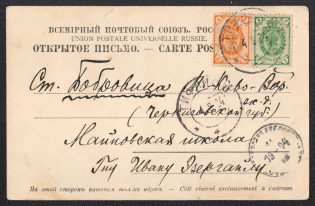 ВСЕМІРНЫЙ ПОЧТОВЫЙ СОЮЗЪ. РОС
UNION POSTALE UNIVERSELLE RUSSIE.
ОТКРЫТОЕ ПИСЬМО. — CARTE POS
Ст. Бобровица К.-Кіево-Вор.
ж. д.
(Черниговской губ.)
Майновская школа
Ивану
На этой сторонѣ пишется только адресъ. — Côté réservé exclusivement à l'adresse.